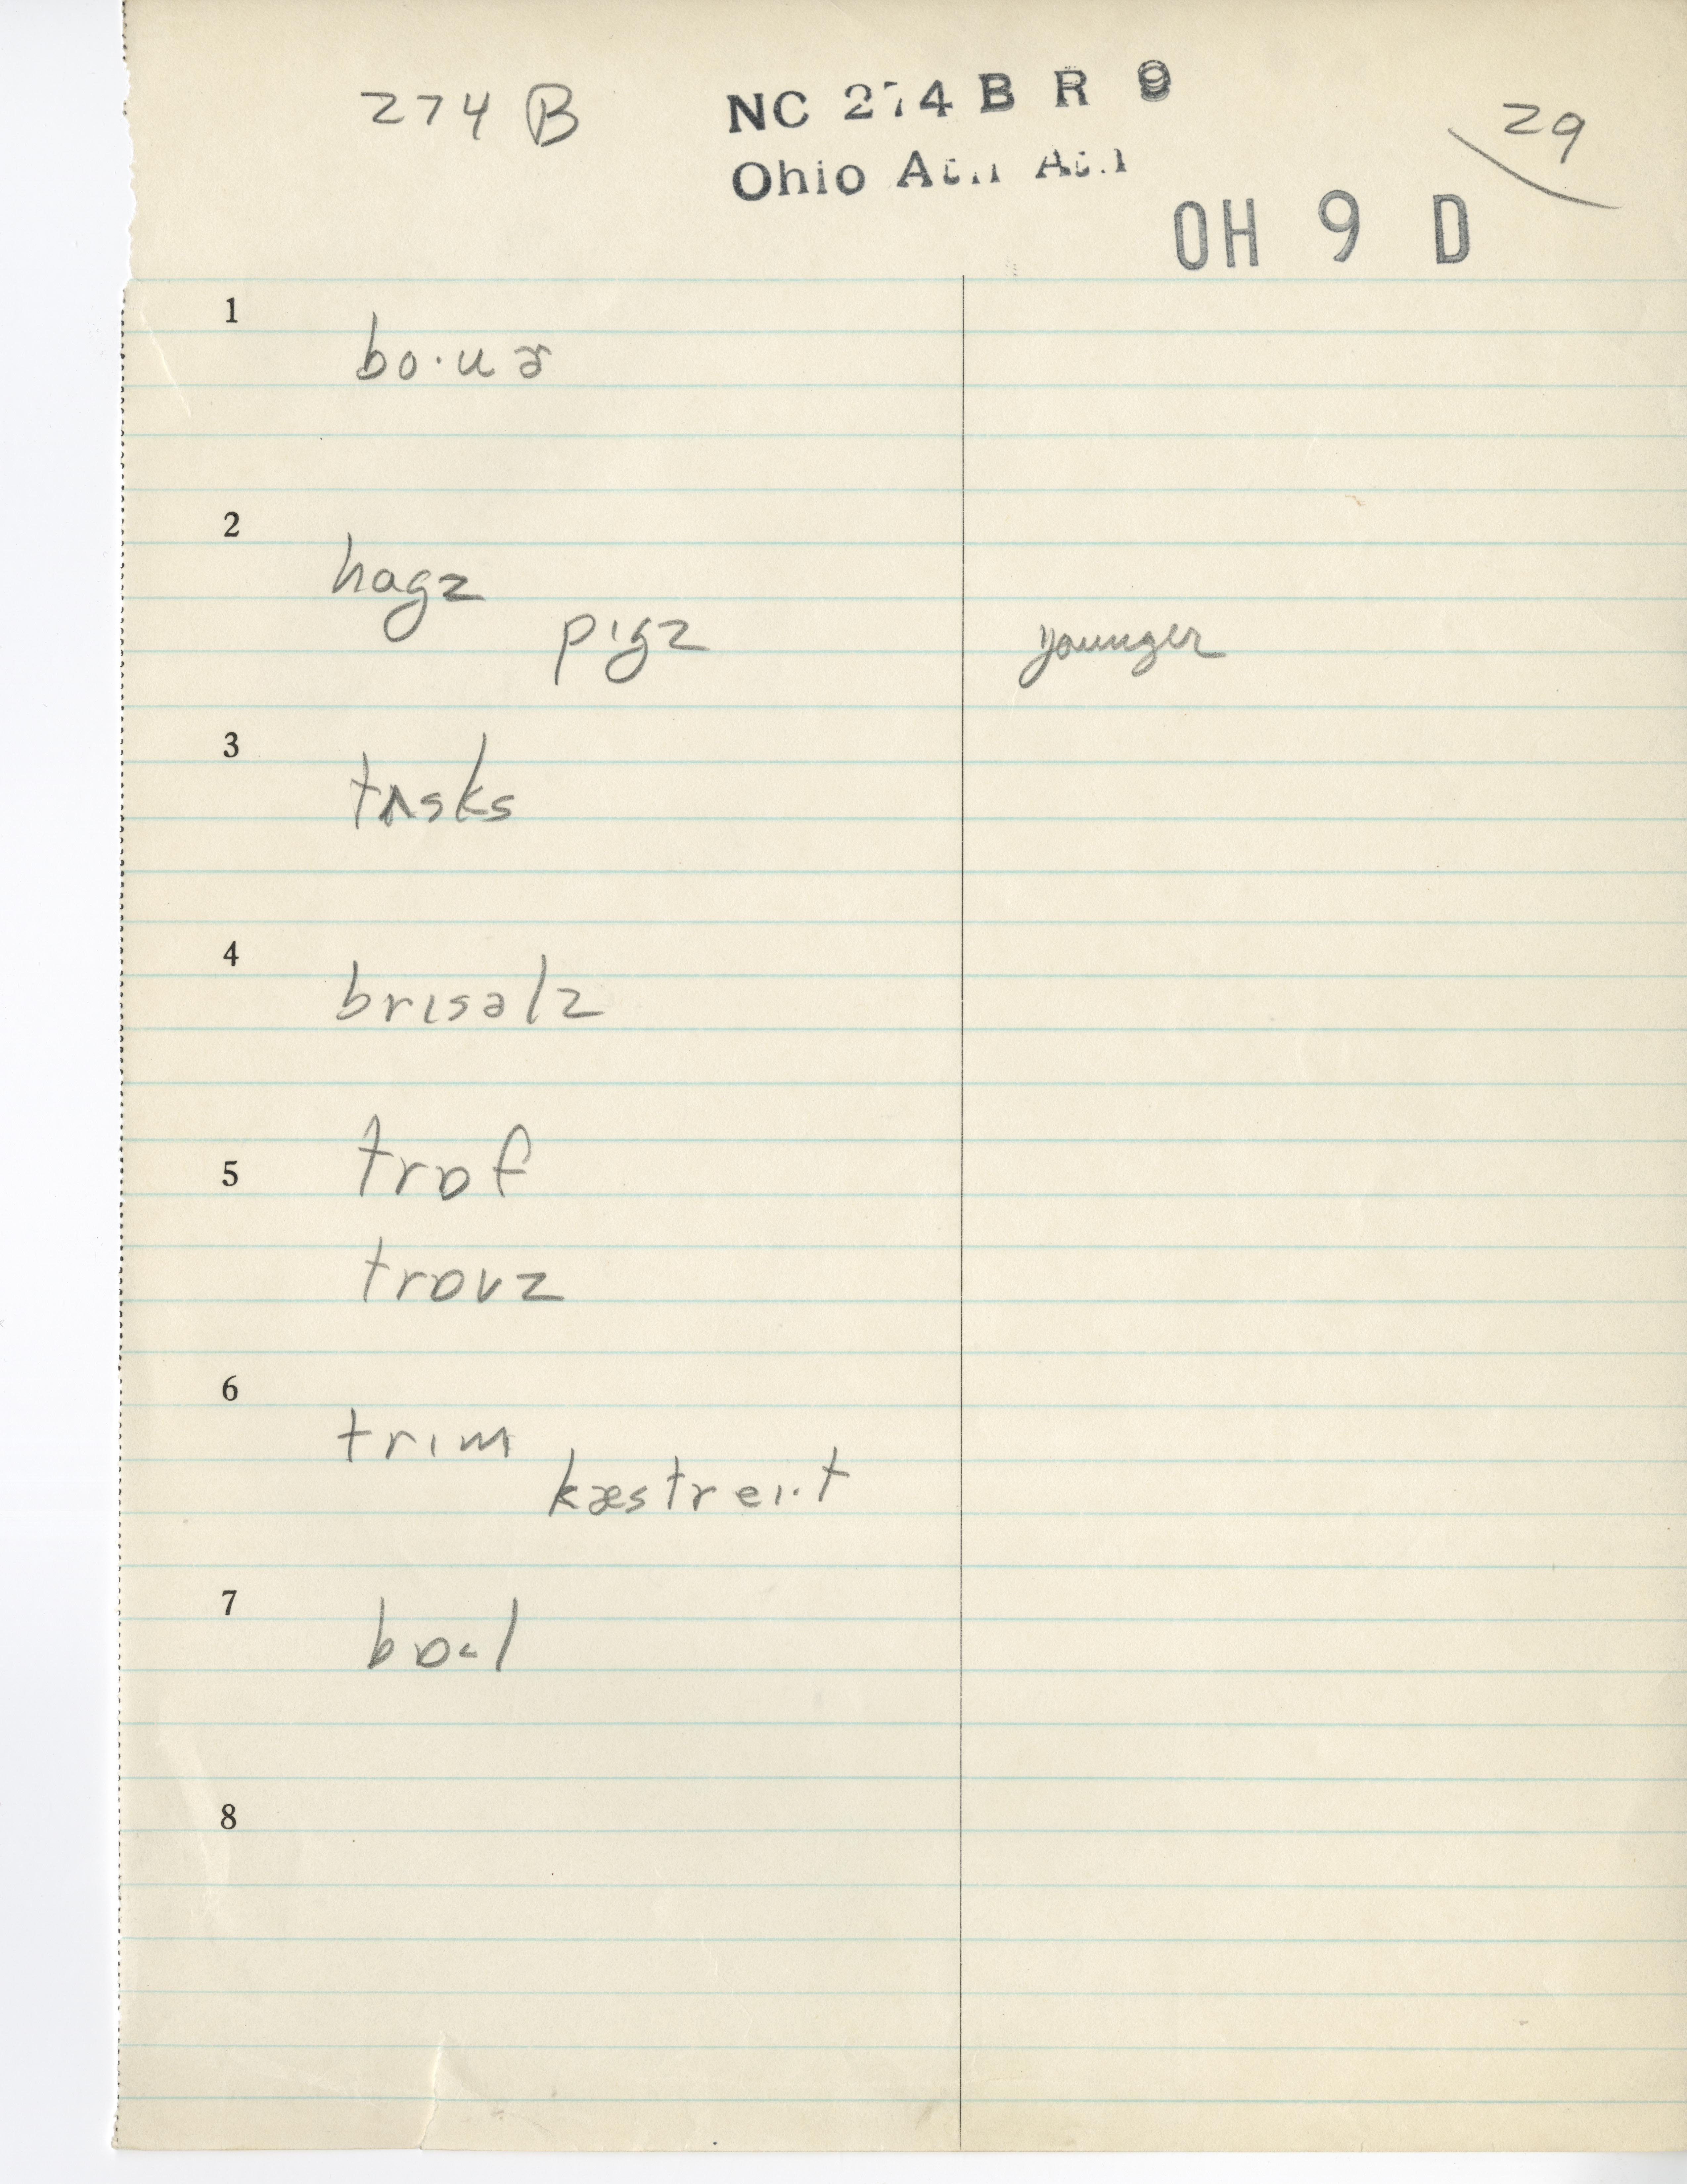 274 B NC 274 B R 9 29
Ohio
OH 9 D
1 bo·uɚ
2 hɑgz
pɪgz younger
3 tʌsks
4 brɪsəlz
5 trɒf
trɒvz
6 trɪm
kæstreɪ·t
7 bɒ˔l
8